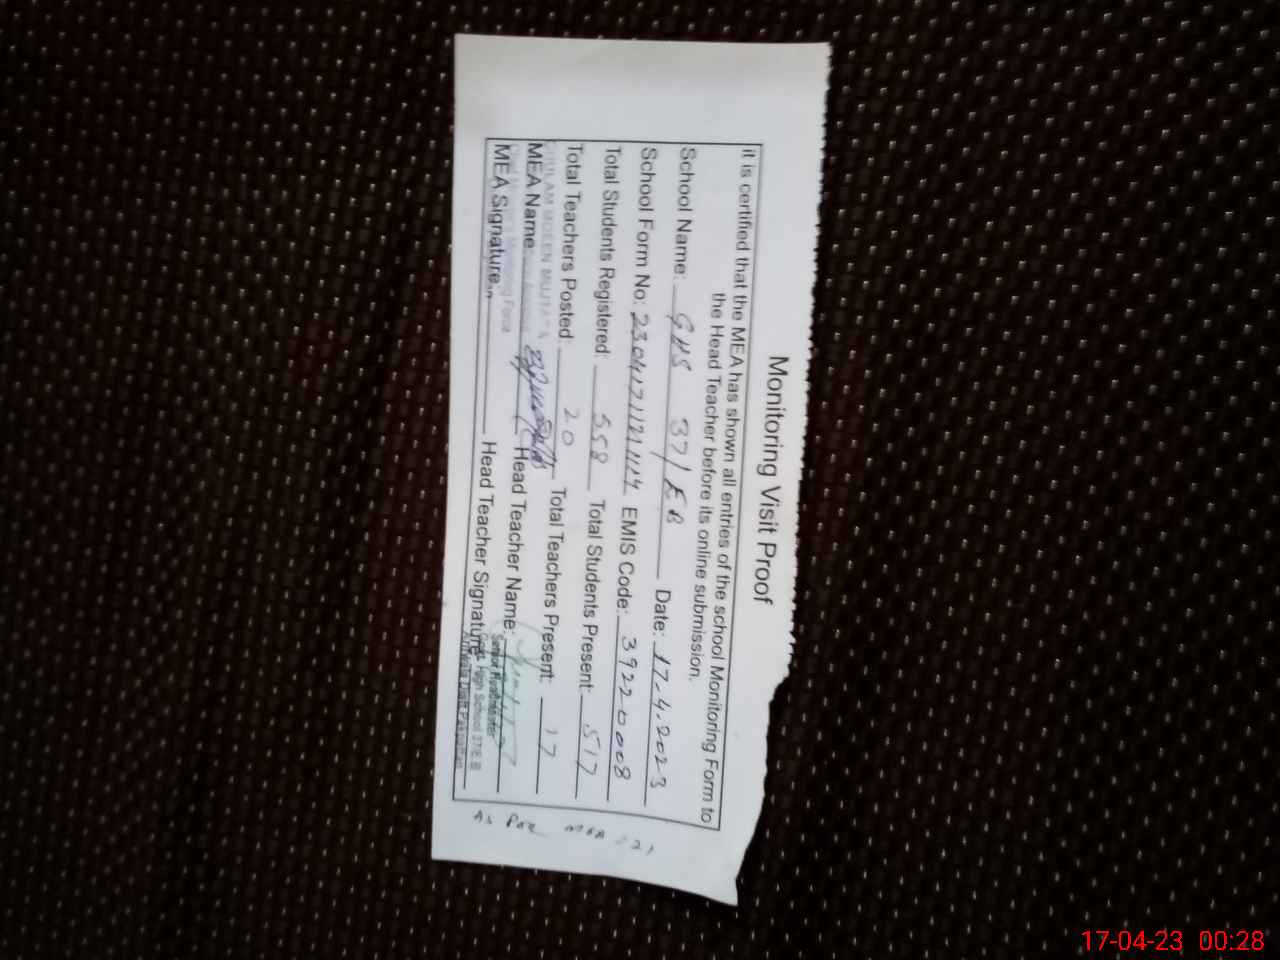 Monitoring Visit Proof
it is certified that the MEA has shown all entries of the school Monitoring Form to
the Head Teacher before its online submission.
School Name: GHS 37/EB Date: 17-4-2023
School Form No: EMIS Code: 39220008
Total Students Registered: 558 Total Students Present: 517
Total Teachers Posted: 20 Total Teachers Present: 17
GHULAM MOEEN MUJTABA
MEA Name: Head Teacher Name:
Monitoring Force
Senior Headmaster
MEA Signature: Head Teacher Signature
High School 37/E.B
Arifwala Distt Pakpattan
As Per MEA = 21
17-04-23 00:28